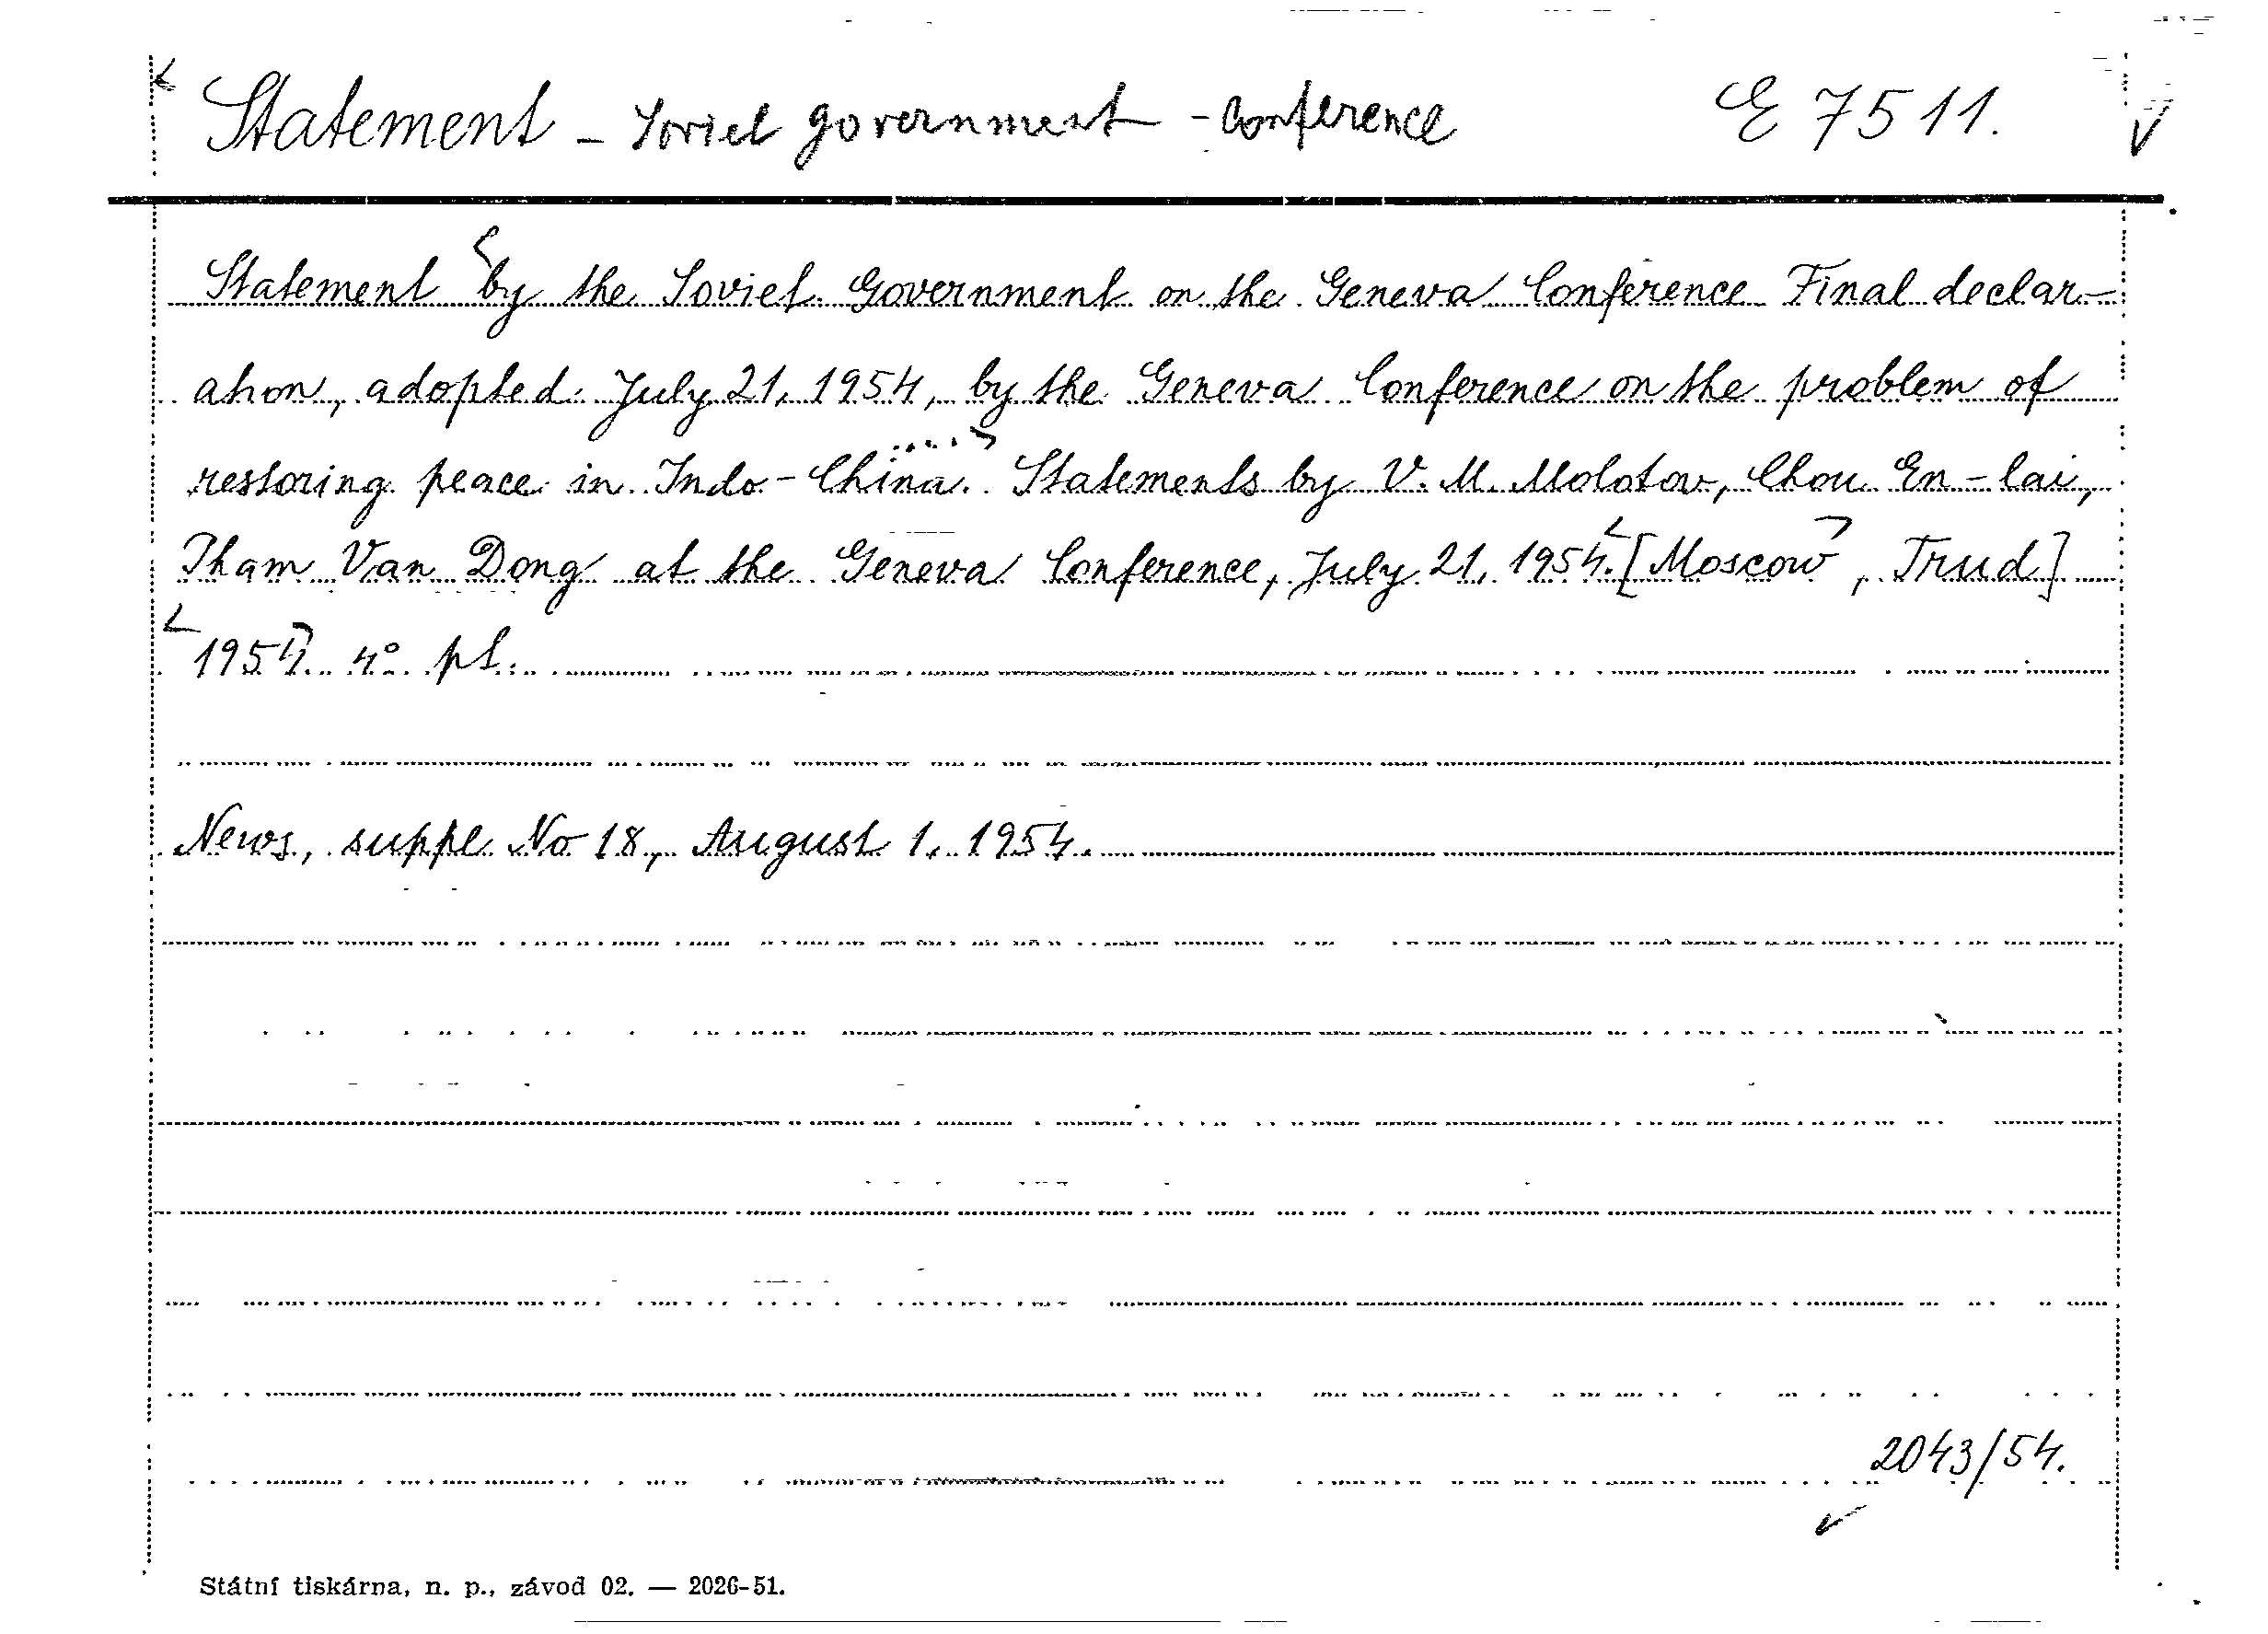 Statement - Soviet government - Conference E 7511.
Statement by the Soviet Government on the Geneva Conference Final declar-
ation, adopted July 21, 1954, by the Geneva Conference on the problem of
restoring peace in Indo-China. Statements by V. M. Molotov, Chou En-lai,
Pham Van Dong at the Geneva Conference, July 21, 1954. [Moscow, Trud]
1954 4° pl.
News, suppl No 18, August 1, 1954.
2043/54.
Státní tiskárna, n. p., závod 02. — 2026-51.